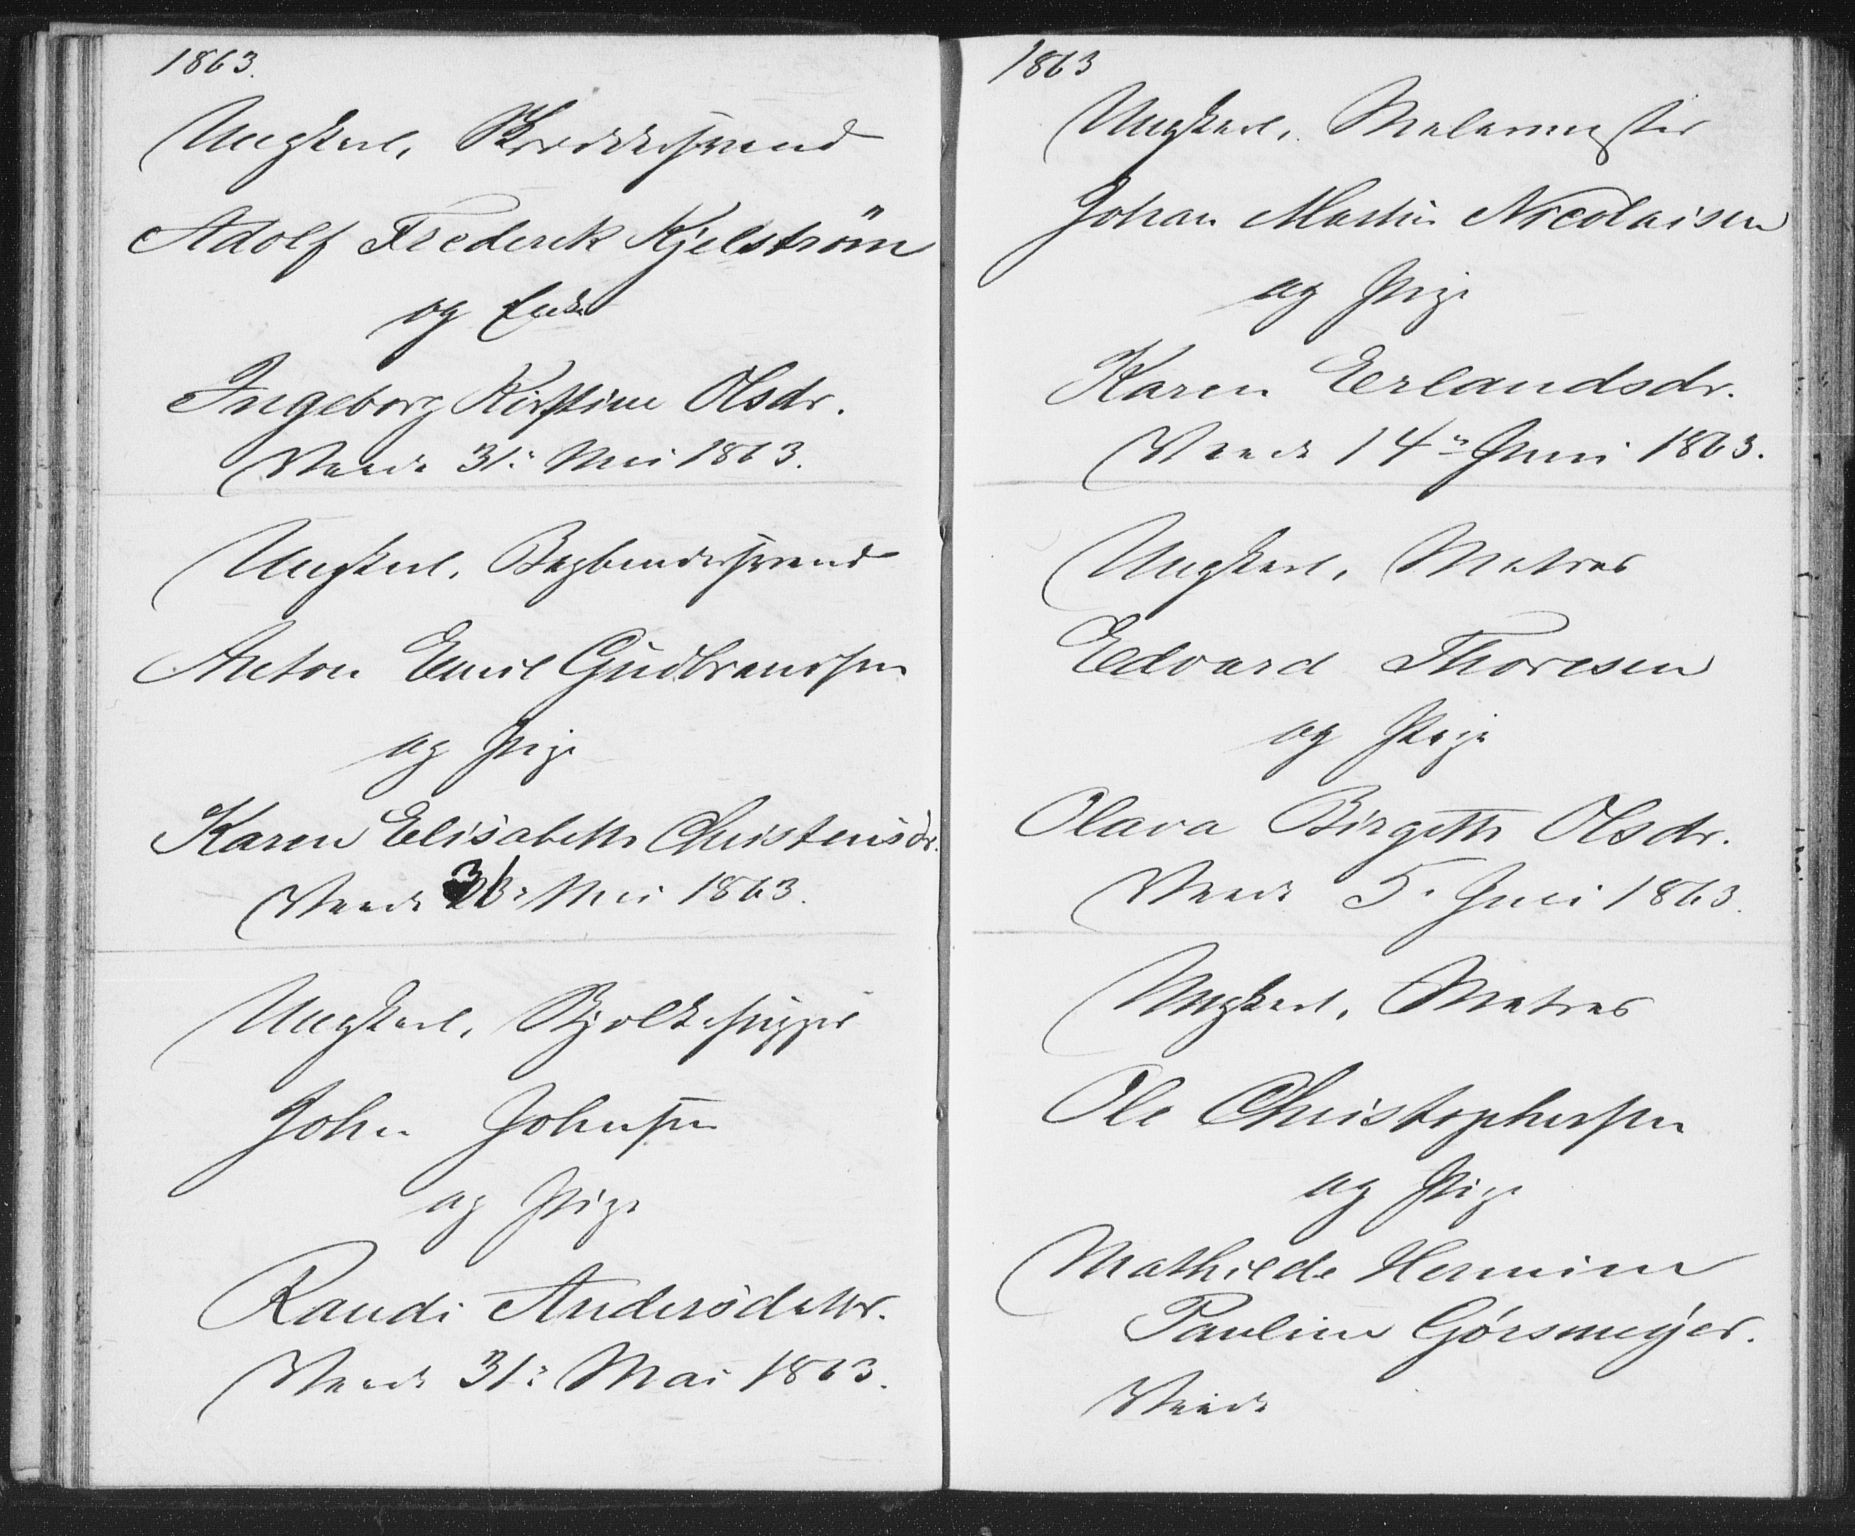 1863.
Ungkarl,
Adolf Frederik Kjelström
og Enke
Ingeborg Kirstine Olsdr.
Viede 31: Mai 1863.
Ungkarl, Bogbindersvend
Anton Emil Gudbrandsen
og Pige
Karen Elisabeth Christensdr.
Viede 31: Mai 1863.
Ungkarl, Bjelkehugger
John Johnsen
og Pige
Randi Andersdatter.
Viede 31: Mai 1863.
1863
Ungkarl, Malermester
Johan Martin Nicolaisen
og Pige
Karen Erlandsdr.
Viede 14: Juni 1863.
Ungkarl, Matros
Edvard Thoresen
og Pige
Olava Birgitte Olsdr.
Viede 5. Juli 1863.
Ungkarl, Matros
Ole Christophersen
og Pige
Mathilde Hermine
Pauline Görsmeyer.
Viede